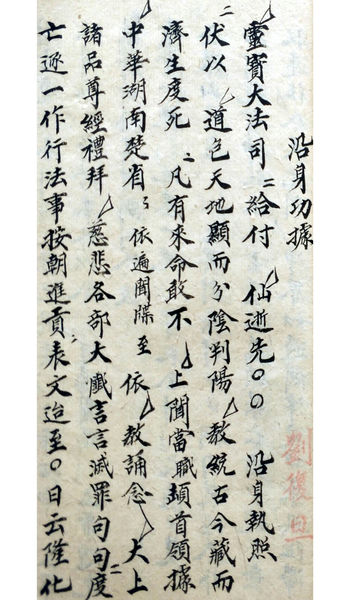 沿身功據
靈寶大法司 給付 仙逝先〇〇 沿身執照
伏以 道包天地顯而分陰判陽 教統古今藏而
濟生度死 凡有來命敢不 上聞當職頴首領據
中華湖南楚省 依遍聞牒 至 依 教誦念 大上
諸品尊經禮拜 慈悲各部大懺言言滅罪句句度
亡逐一作行法事按朝進貢表文迨至〇日云隆化
劉復旦